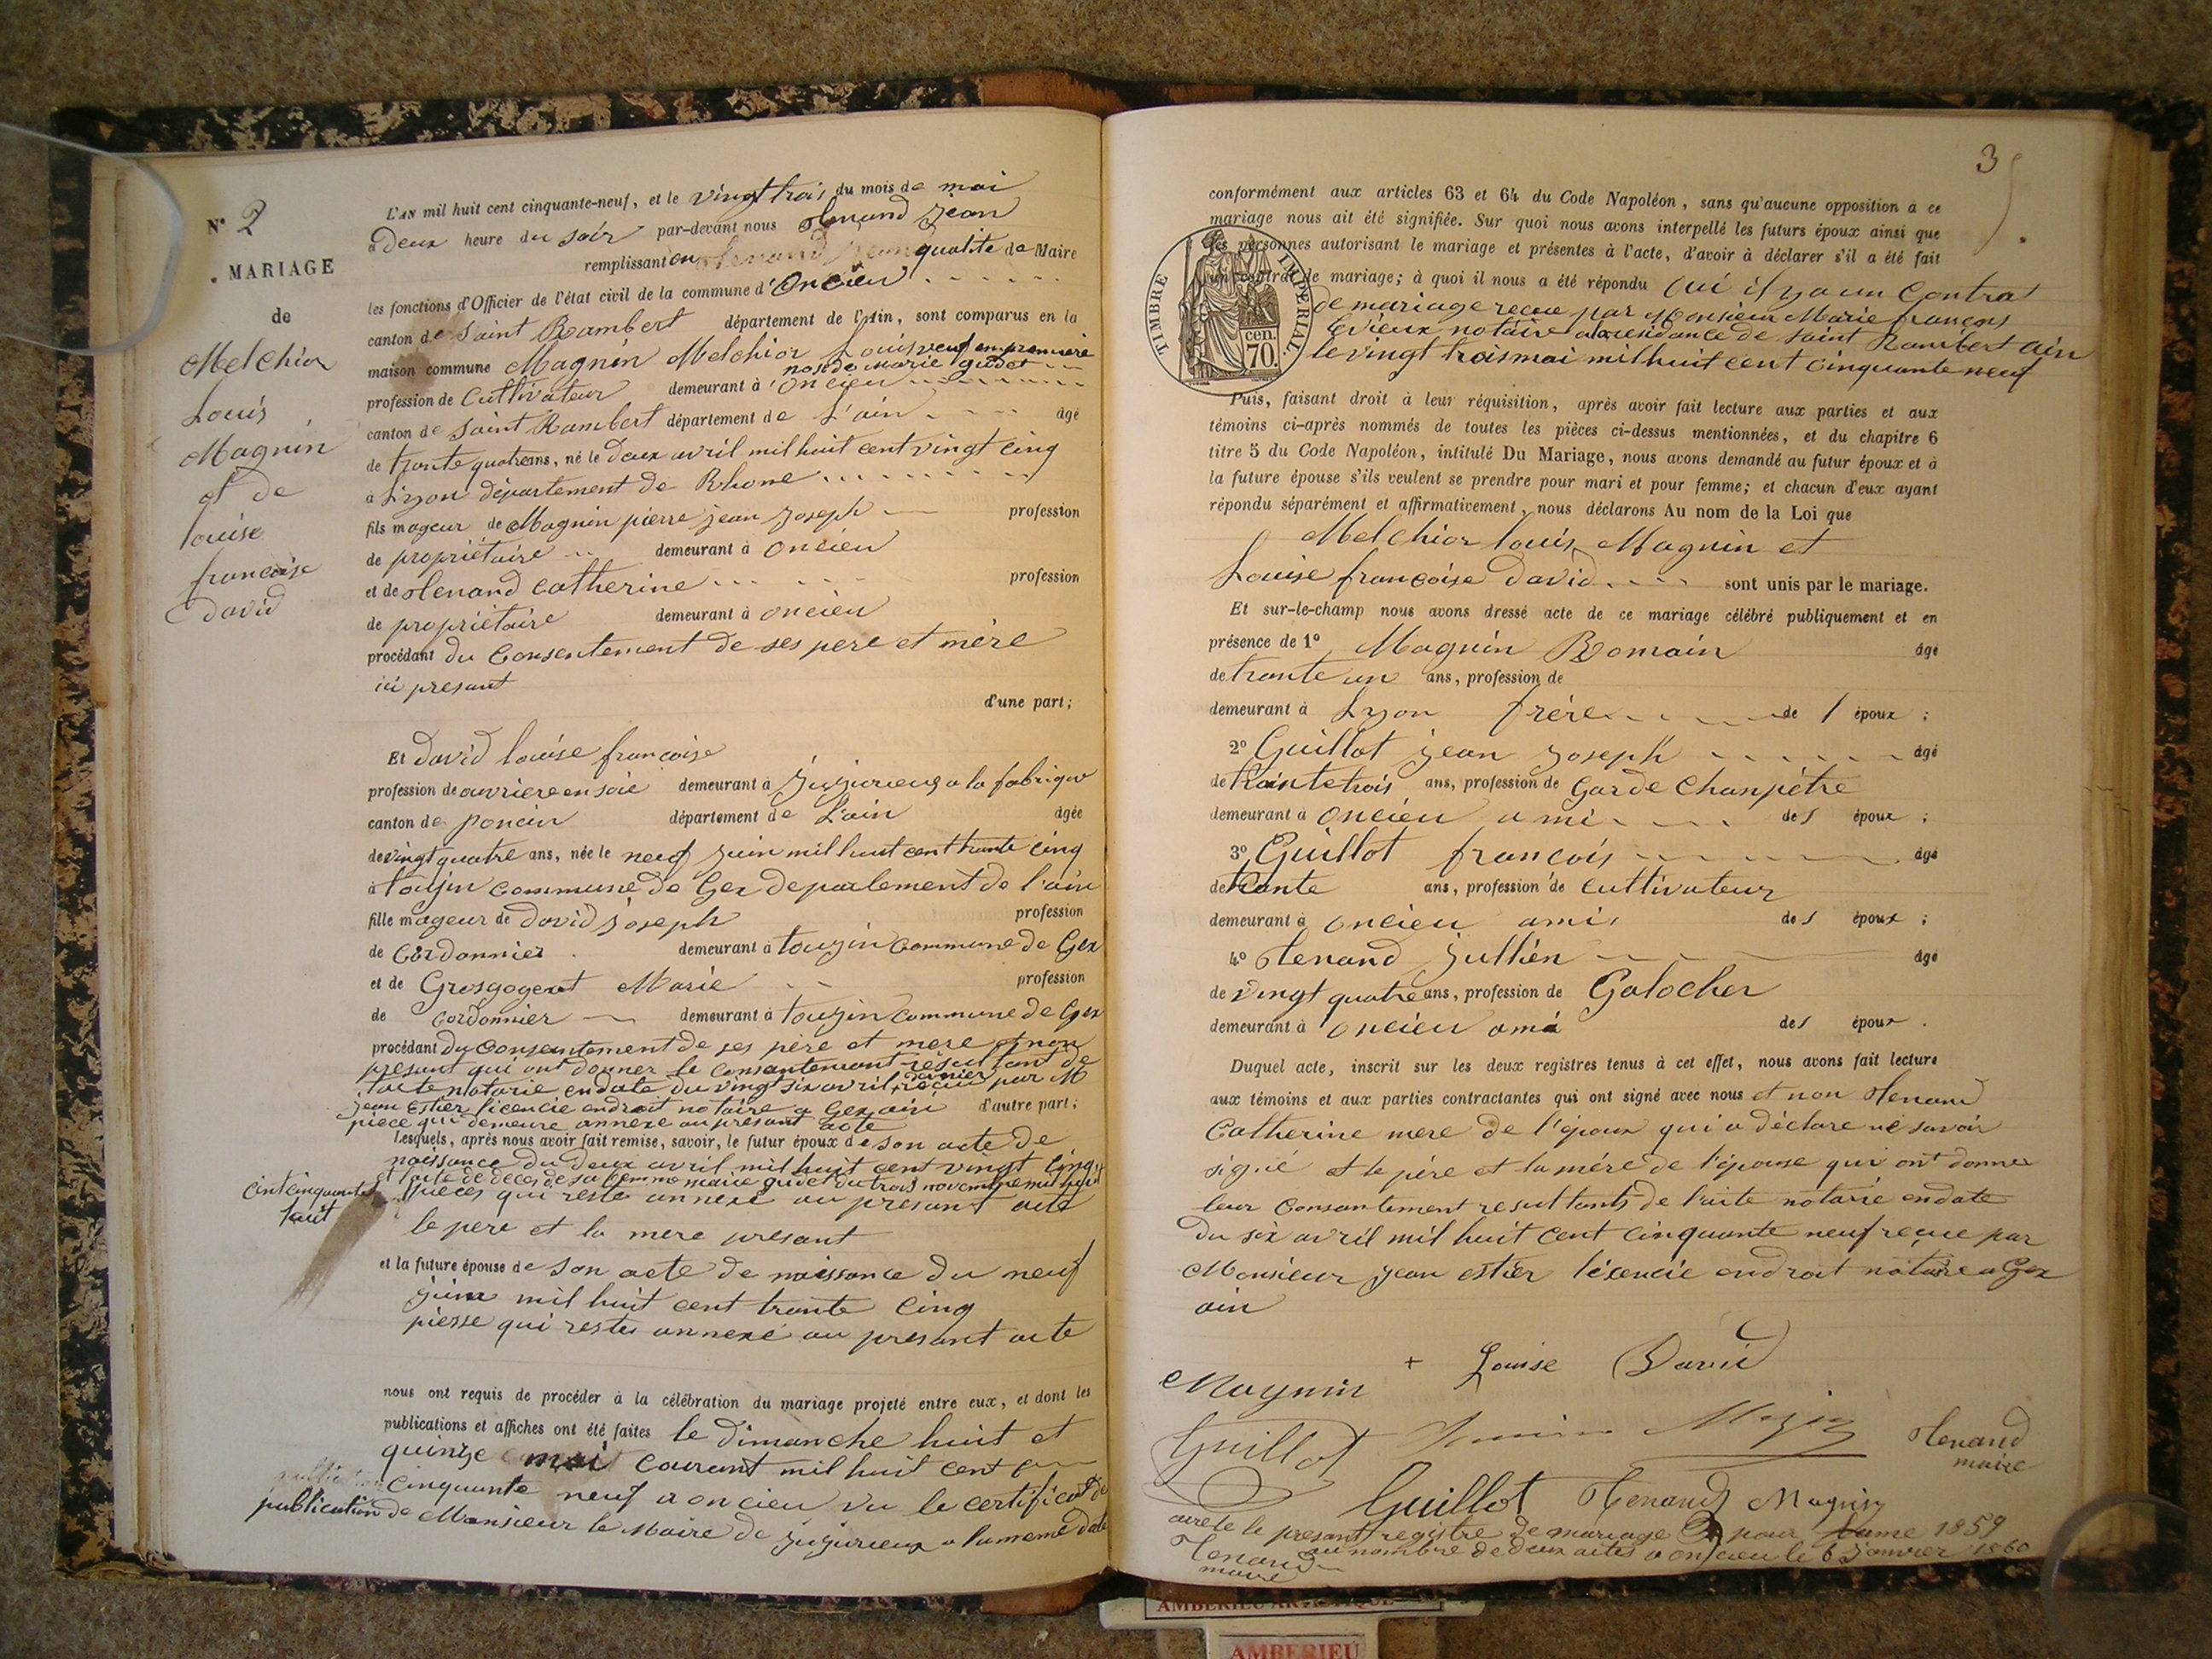 N° 2
MARIAGE
de
Melchior
Louis
Magnin
et de
louise
francoise
David
L'AN mil huit cent cinquante-neuf, et le vingt trois du mois de mai
a Deux heure du soir par-devant nous Tenand Jean
remplissant en qualité de Maire
les fonctions d'Officier de l'état civil de la commune d'Oncieu
canton de Saint Rambert département de l'Ain, sont comparus en la
maison commune Magnin Melchior Louis veuf en premiere
nose de Marie gudet
profession de Cultivateur demeurant à Oncieu
canton de Saint Rambert département de L'ain âgé
de trante quatre ans, né le deux avril mil huit cent vingt cinq
à Lyon département de Rhone
fils mageur de Magnin pierre jean Joseph profession
de propriétaire demeurant à Oncieu
et de Tenand Catherine profession
de propriétaire demeurant à Oncieu
procédant du Consentement de ses pere et mère
ici presant
d'une part;
Et David louise francoise
profession de ouvriere en soie demeurant à Jujurieux a la fabrique
canton de poncin département de L'ain âgée
de vingt quatre ans, née le neuf Juin mil huit cent trante cinq
à toujin Commune de Gex departement de l'ain
fille mageur de David Joseph profession
de Cordonnier demeurant à toujin Commune de Gex
et de Grosgogeat Marie profession
de Cordonnier demeurant à toujin Commune de Gex
procédant du Consantement de ses père et mere et non
presant qui ont donner le Consantemant résultant de
l'acte notarie en date du vingt six avril dernier recue par M
jean Estier licencie endroit notaire a Gex ain d'autre part;
piece qui demeure annexe au presant acte
Lesquels, après nous avoir fait remise, savoir, le futur époux de son acte de
naissance du deux avril mil huit cent vingt cinq
et l'acte de deces de sa femme marie gudet du trois novembre mil huit
cint cinquante
huit
pièces qui reste annexe au presant acte
le pere et la mere presant
et la future épouse de son acte de naissance du neuf
juin mil huit cent trante cinq
piesse qui restes annexé au presant acte
nous ont requis de procéder à la célébration du mariage projeté entre eux, et dont les
publications et affiches ont été faites le dimanche huit et
quinze mai courant mil huit cent
cinquante neuf a oncieu vu le certificat de
publication de Monsieur le Maire de Jujurieux a la meme date
3
conformément aux articles 63 et 64 du Code Napoléon, sans qu'aucune opposition à ce
mariage nous ait été signifiée. Sur quoi nous avons interpellé les futurs époux ainsi que
les personnes autorisant le mariage et présentes à l'acte, d'avoir à déclarer s'il a été fait
un contrat de mariage; à quoi il nous a été répondu oui il y a un Contrat
de mariage recue par Monsieur Marie francois
notaire a la residance de saint Rambert ain
le vingt trois mai mil huit cent cinquante neuf
TIMBRE IMPÉRIAL.
cen.
70.
Puis, faisant droit à leur réquisition, après avoir fait lecture aux parties et aux
témoins ci-après nommés de toutes les pièces ci-dessus mentionnées, et du chapitre 6
titre 5 du Code Napoléon, intitulé Du Mariage, nous avons demandé au futur époux et à
la future épouse s'ils veulent se prendre pour mari et pour femme; et chacun d'eux ayant
répondu séparément et affirmativement, nous déclarons Au nom de la Loi que
Melchior louis Magnin et
Louise françoise David sont unis par le mariage.
Et sur-le-champ nous avons dressé acte de ce mariage célébré publiquement et en
présence de 1° Magnin Romain âgé
de trante un ans, profession de
demeurant à Lyon frère de l époux ;
2° Guillot jean Joseph âgé
de trante trois ans, profession de Garde Chanpétre
demeurant à Oncieu ami des époux ;
3° Guillot francois âgé
de trante ans, profession de Cultivateur
demeurant à Oncieu ami des époux ;
4° Tenand Jullien âgé
de vingt quatre ans, profession de Galocher
demeurant à Oncieu ami des époux .
Duquel acte, inscrit sur les deux registres tenus à cet effet, nous avons fait lecture
aux témoins et aux parties contractantes qui ont signé avec nous et non Tenand
Catherine mere de l'époux qui a déclare ne savoir
signé et le père et la mére de l'épouse qui ont donner
leur Consantement resultants de l'acte notarie en date
du six avril mil huit cent cinquante neuf reçue par
Monsieur jean estier licencie endroit notaire a Gex
ain
Magnin + Louise David
Guillot Tenand
maire
Guillot Tenand Magnin
arrete le presant registre de mariage pour l'anne 1859
au nombre de deux actes a oncieu le 6 Janvier 1860
Tenand
maire
AMBERIEU